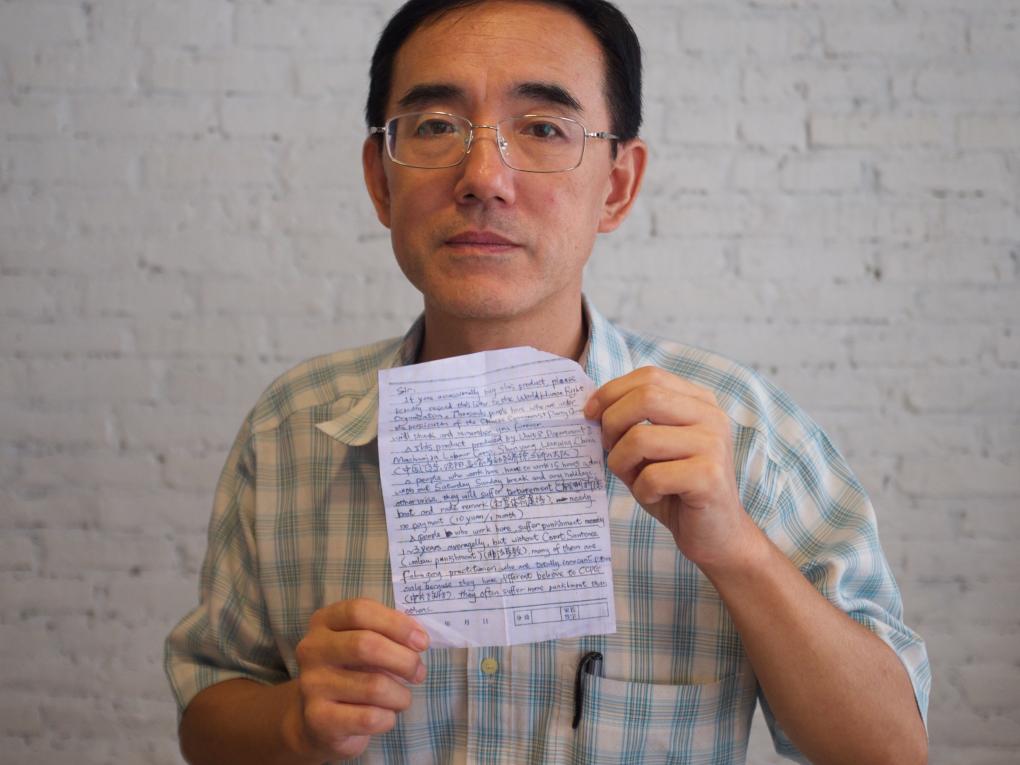 Sir:
If you occassionally buy this product, please
kindly resend this letter to the World Human Right
Organization. Thousands people here who are under
the persicution of the Chinese Communist Party
will thank and remember you forever.
This product produced by Unit 8, Department 2,
Labour Camp, Shen yang, Liaoning, China
(中国,辽宁,沈阳
people who work here, have to work 15 hours a day
with out Saturday, Sunday break and any holidays,
otherwise, they will suffer torturement
beat and rude remark nearly
no payment (10 yuan/1 month)
people who work here, suffer punishment nearly
1~3 years averagelly, but without Court Sentence
(unlaw punishment) (非法劳教), many of them are
Falun gong practitioner, who are totally innocent people
only because they have different believe to CCPG
they often suffer more punishment than
others.
年 月 日